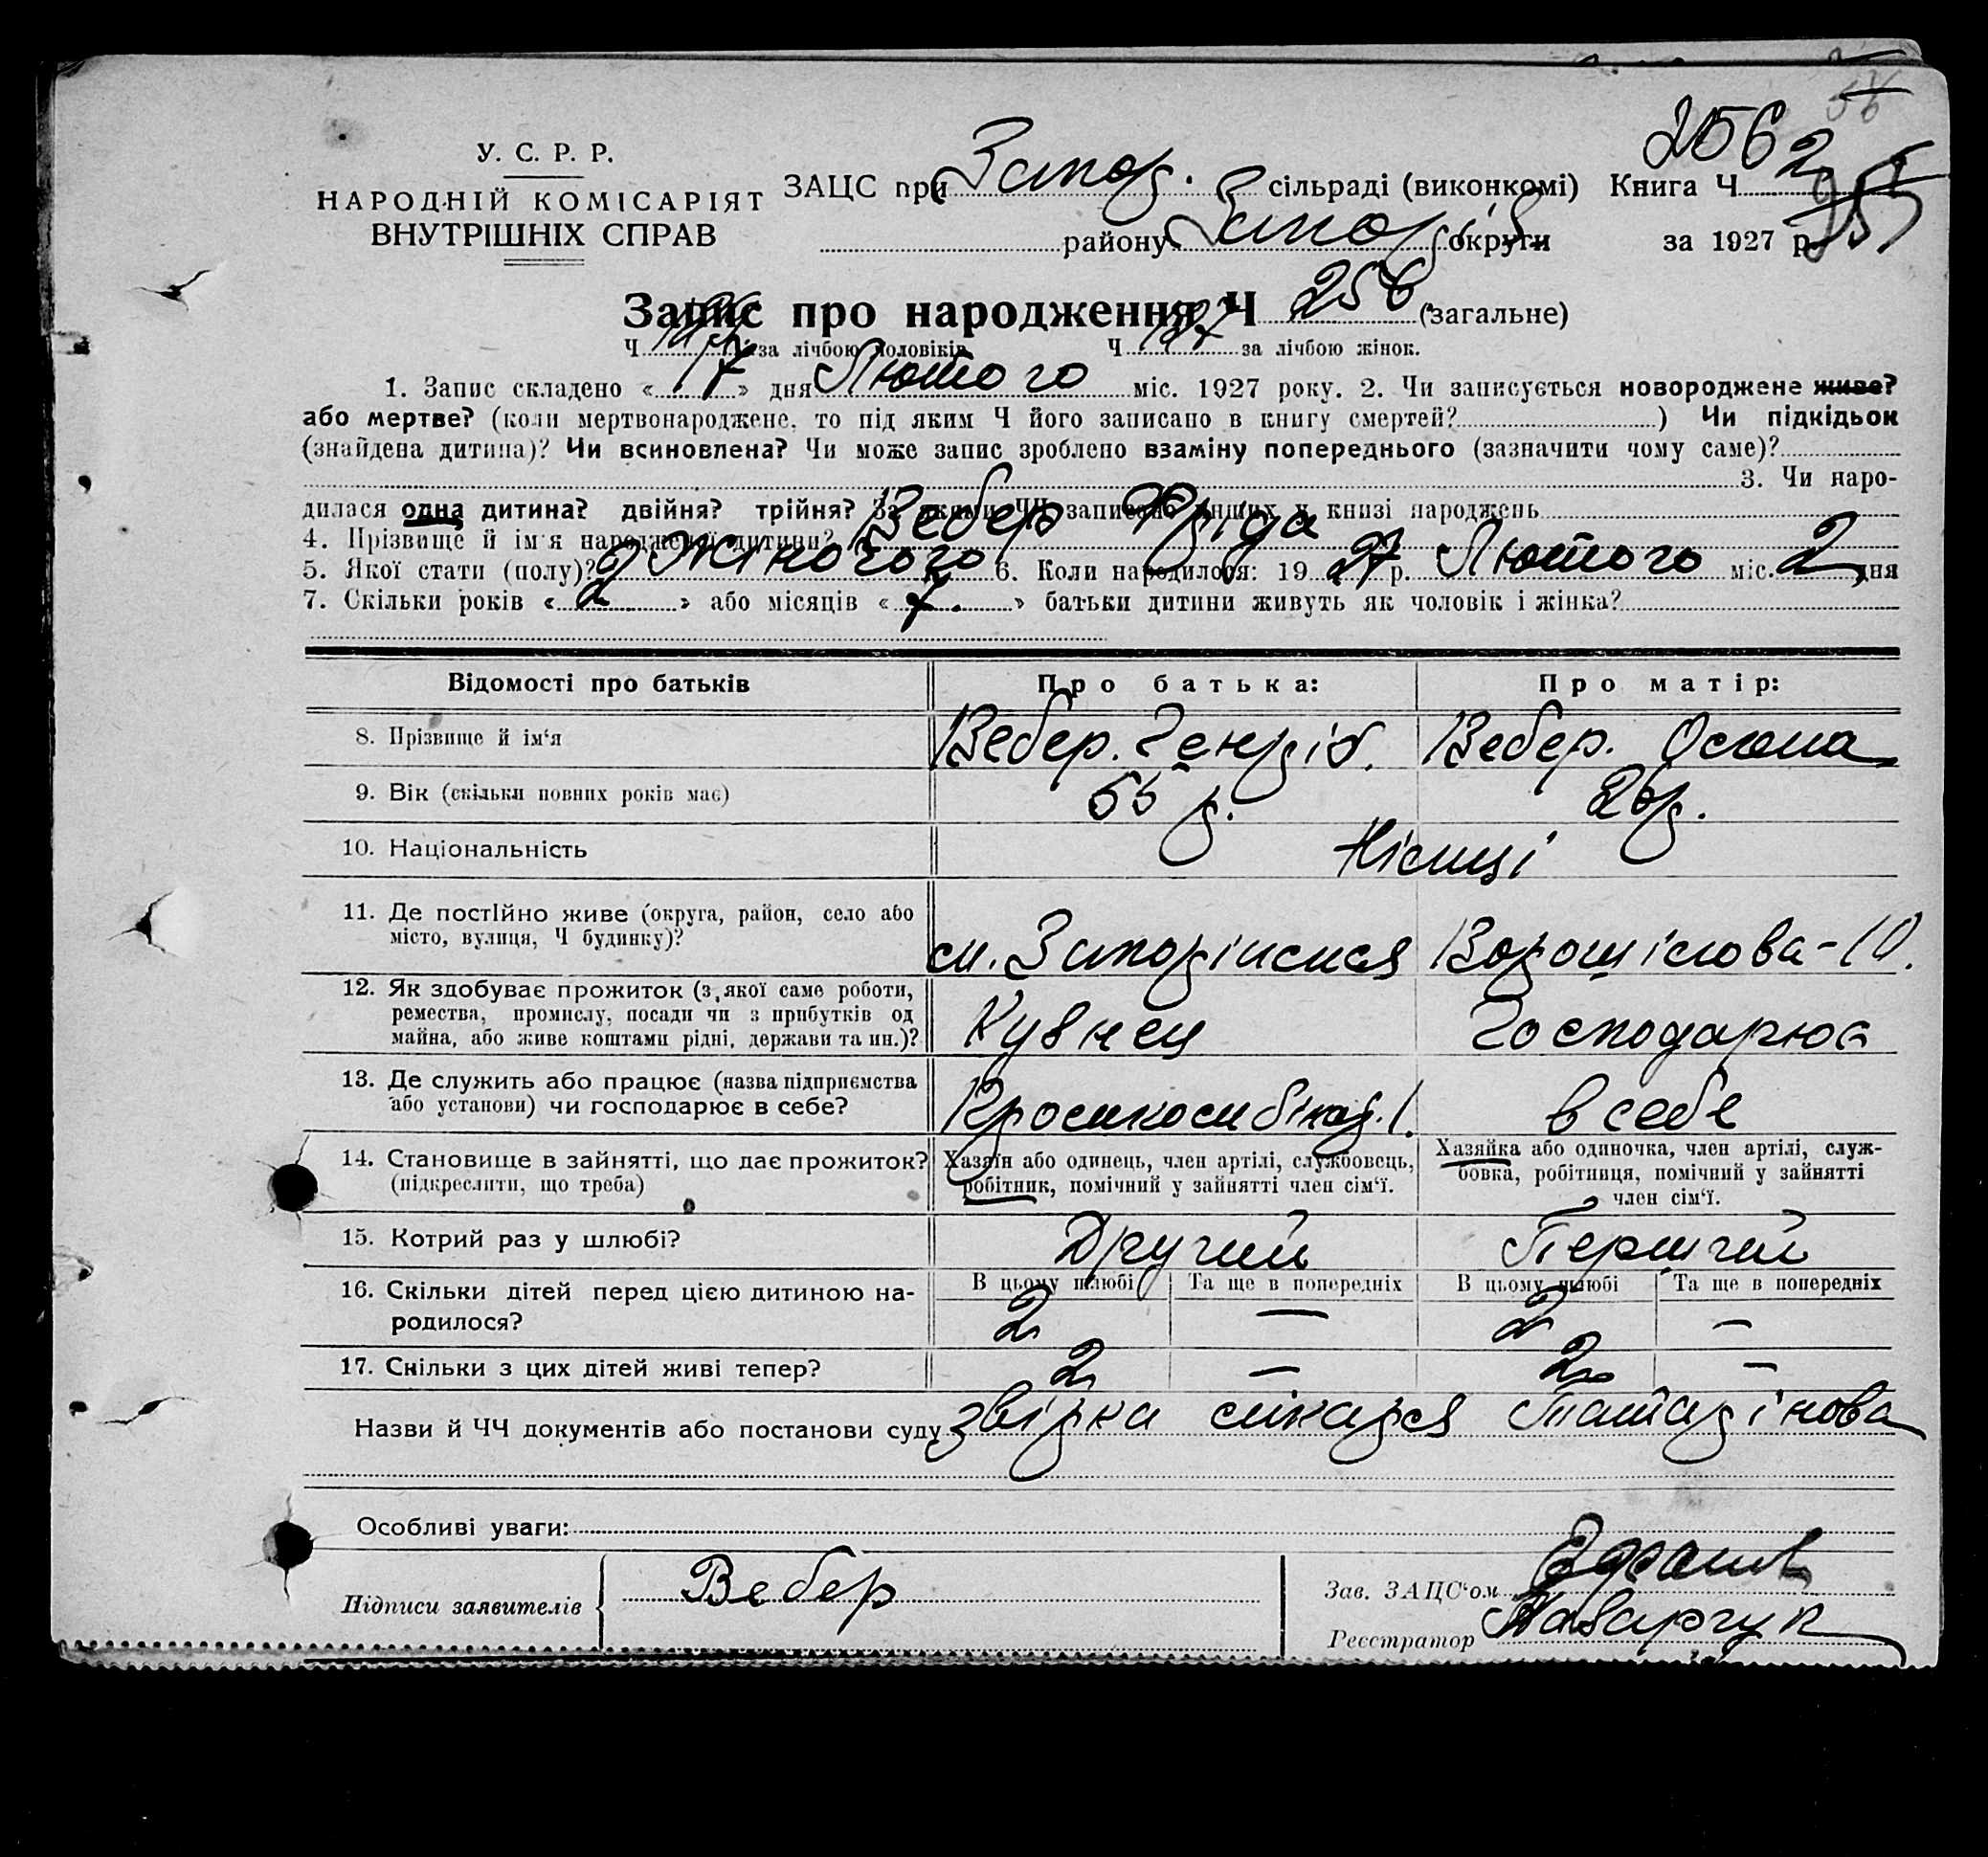 2562
У. С. Р. Р.
НАРОДНІЙ КОМІСАРІЯТ
ВНУТРІШНІХ СПРАВ
ЗАЦС при Запор. сільраді (виконкомі) Книга Ч. 2
району Запоріз округи за 1927 р.
Запис про народження Ч 256 (загальне)
Ч за лічбою чоловіків Ч 127 за лічбою жінок.
1. Запис складено «17» дня Лютого міс. 1927 року. 2. Чи записується новороджене живе?
або мертве? (коли мертвонароджене, то під яким Ч його записано в книгу смертей? ) Чи підкідьок
(знайдена дитина)? Чи всиновлена? Чи може запис зроблено взаміну попереднього (зазначити чому саме)?
3. Чи наро-
дилася одна дитина? двійня? трійня? За якими ЧЧ записано инших у книзі народжень
4. Прізвище й ім'я народженої дитини? Вебер Фріда
5. Якої стати (полу)? Жіночого 6. Коли народилося: 1927 р. Лютого міс. 2 дня
7. Скільки років «2» або місяців «7.» батьки дитини живуть як чоловік і жінка?
Відомості про батьків Про батька: Про матір:
8. Прізвище й ім'я Вебер. Генріх. Вебер.
9. Вік (скільки повних років має) 55 р. 26 р.
10. Національність Німці
11. Де постійно живе (округа, район, село або
місто, вулиця, Ч будинку)? м. Запоріжжя Ворошілова-10.
12. Як здобуває прожиток (з якої саме роботи,
ремества, промислу, посади чи з прибутків од
майна, або живе коштами рідні, держави та ин.)? Кузнец Господарює
13. Де служить або працює (назва підприємства
або установи) чи господарює в себе? в себе
14. Становище в зайнятті, що дає прожиток? Хазяїн або одинець, член артілі, службовець, Хазяйка або одиночка, член артілі, служ-
(підкреслити, що треба) робітник, помічний у зайнятті член сім'ї. бовка, робітниця, помічний у зайнятті
член сім'ї.
15. Котрий раз у шлюбі? Другий Перший
16. Скільки дітей перед цією дитиною на- В цьому шлюбі Та ще в попередніх В цьому шлюбі Та ще в попередніх
родилося? 2 — 2 —
17. Скільки з цих дітей живі тепер? 2 — 2 —
Назви й ЧЧ документів або постанови суду звірка лікаря Татарінова
Особливі уваги:
Підписи заявителів Вебер
Зав. ЗАЦС'ом
Реєстратор